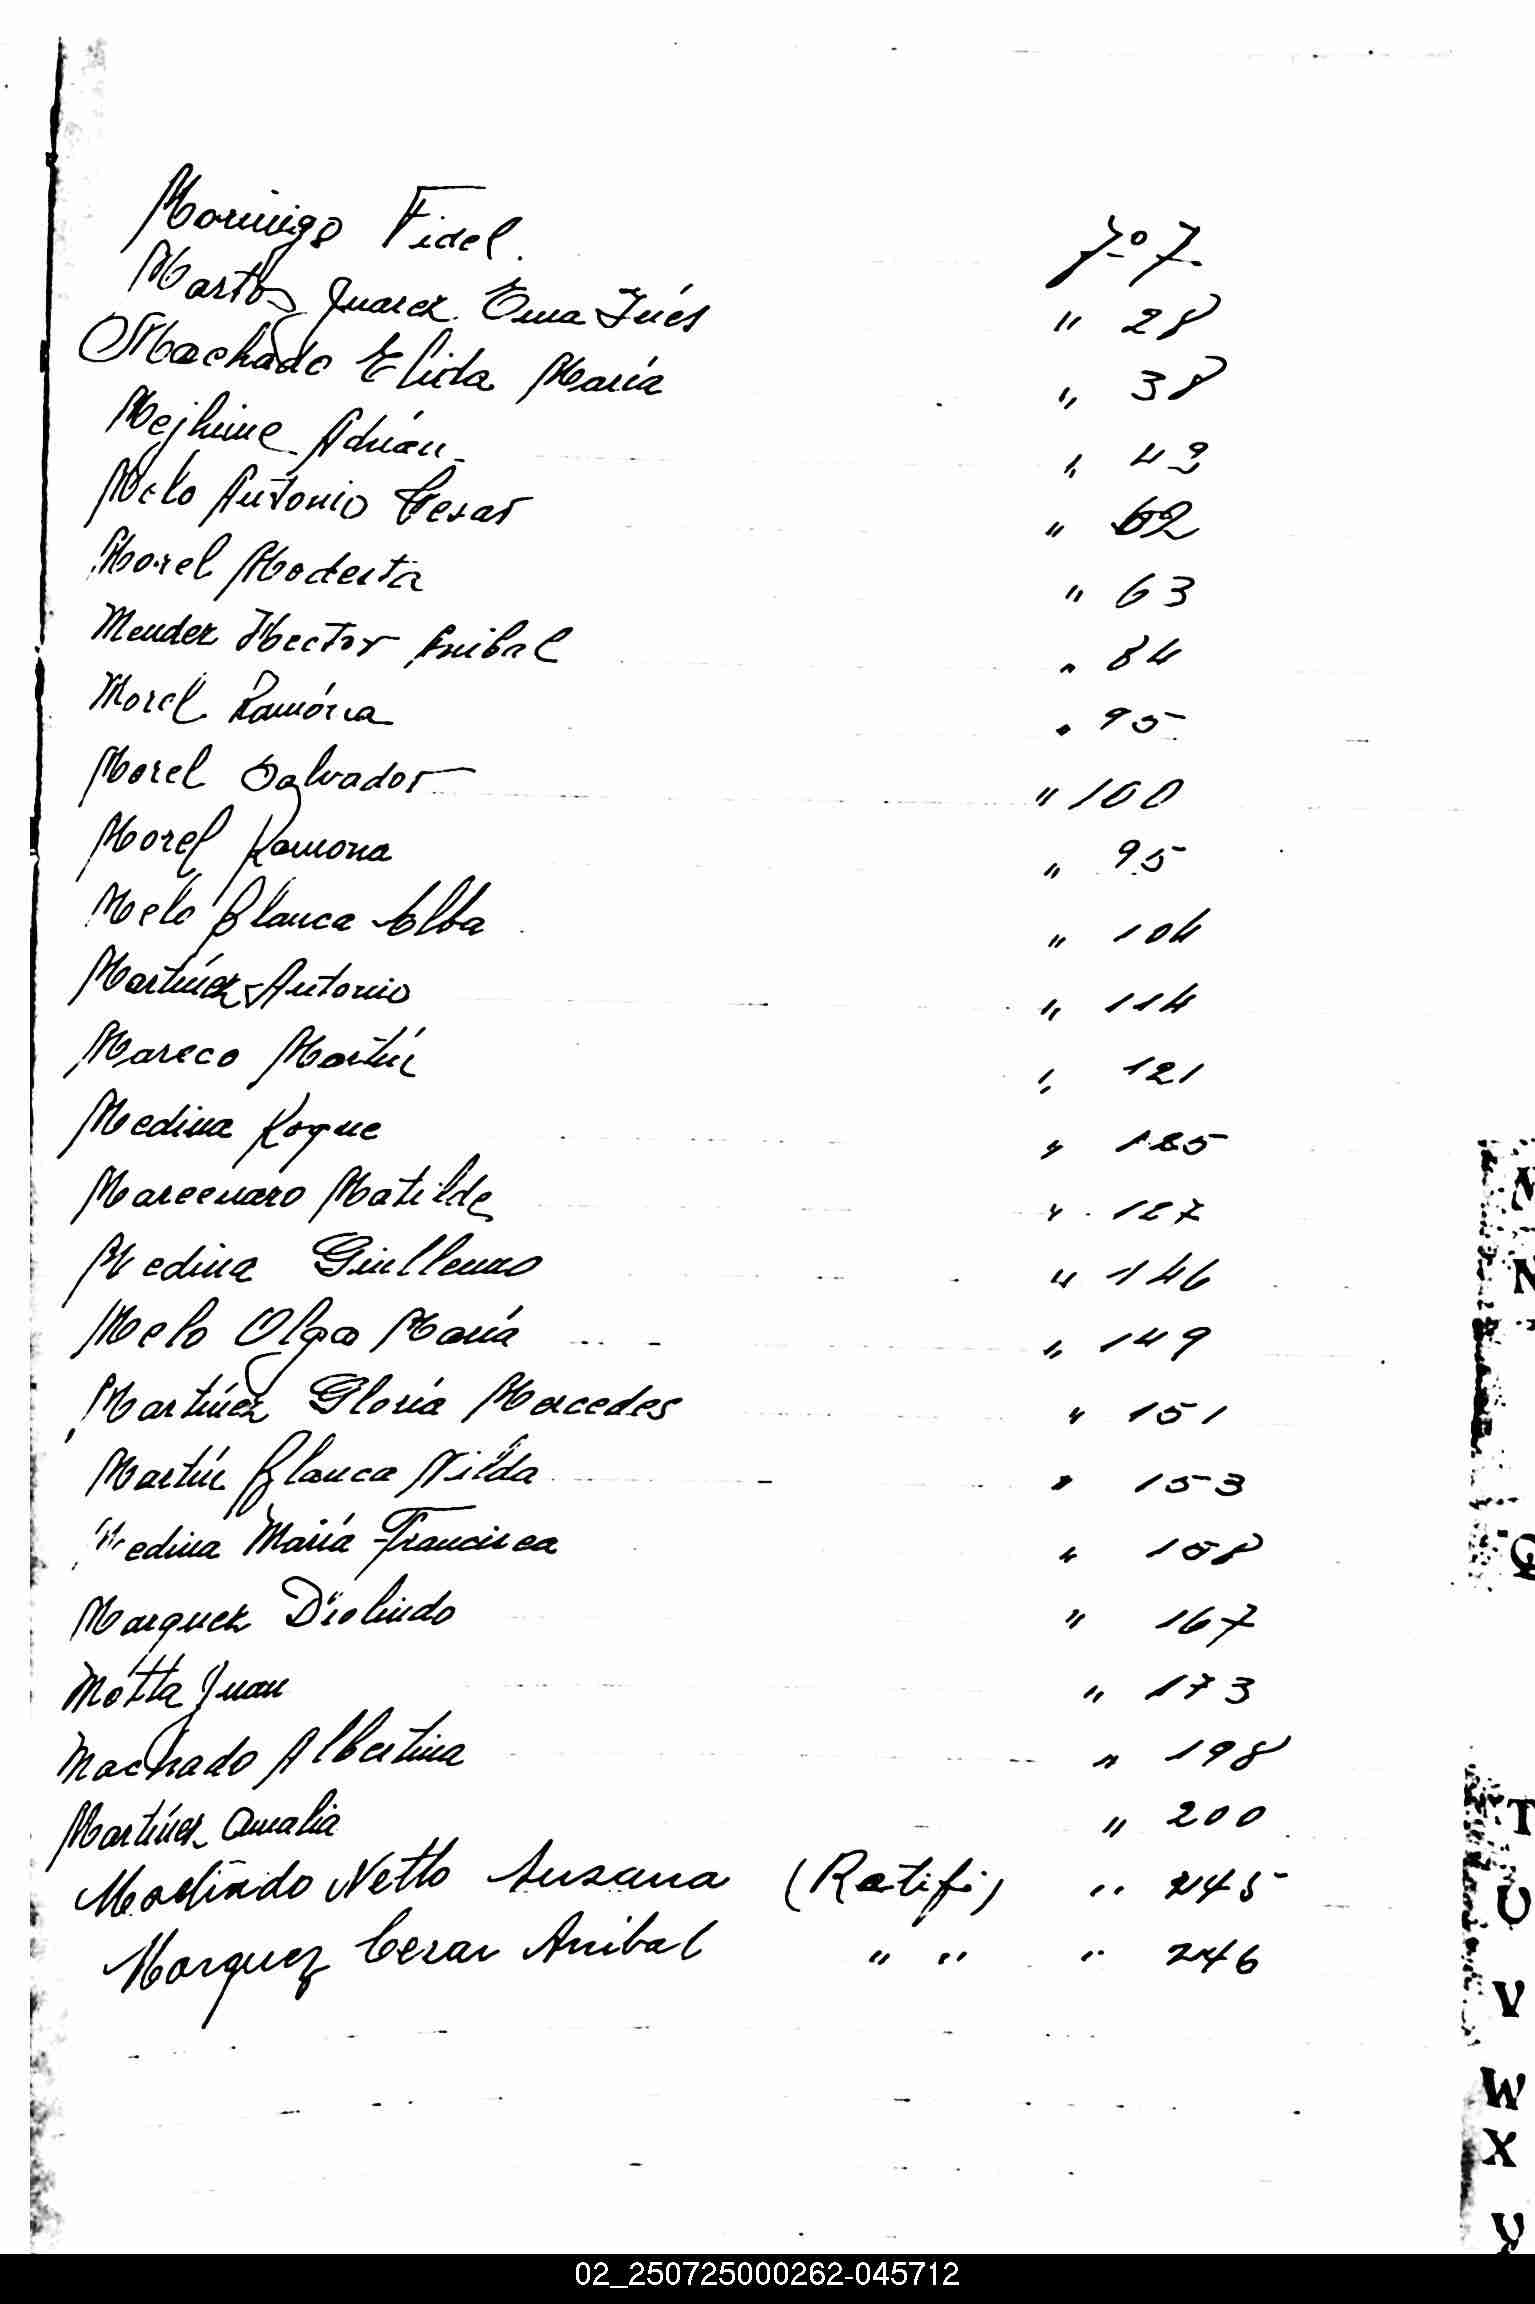 Morinigo Fidel. fº 7.
Martos Juarez Ema Inés " 28
Machado Elida María " 38
Mejhine Adrián " 43
Melo Antonio Cesar " 62
Morel Modesta " 63
Mendez Hector Anibal " 84
Morel Ramóna " 95
Morel Salvador " 100
Morel Ramona " 95
Melo Blanca Alba " 104
Martínez Antonio " 114
Mareco Martín " 121
Medina Roque " 125
Marcenaro Matilde " 127
Medina Guillermo " 146
Melo Olga María " 149
Martínez Gloria Mercedes " 151
Martín Blanca Nilda " 153
Medina María Francisca " 158
Marquez Diolindo " 167
Motta Juan " 173
Machado Albertina " 198
Martínez Amalia " 200
Netto Susana (Ratifi) " 245
Marquez Cesar Anibal " " " 246
N
Q
T
U
V
W
X
Y
02_250725000262-045712